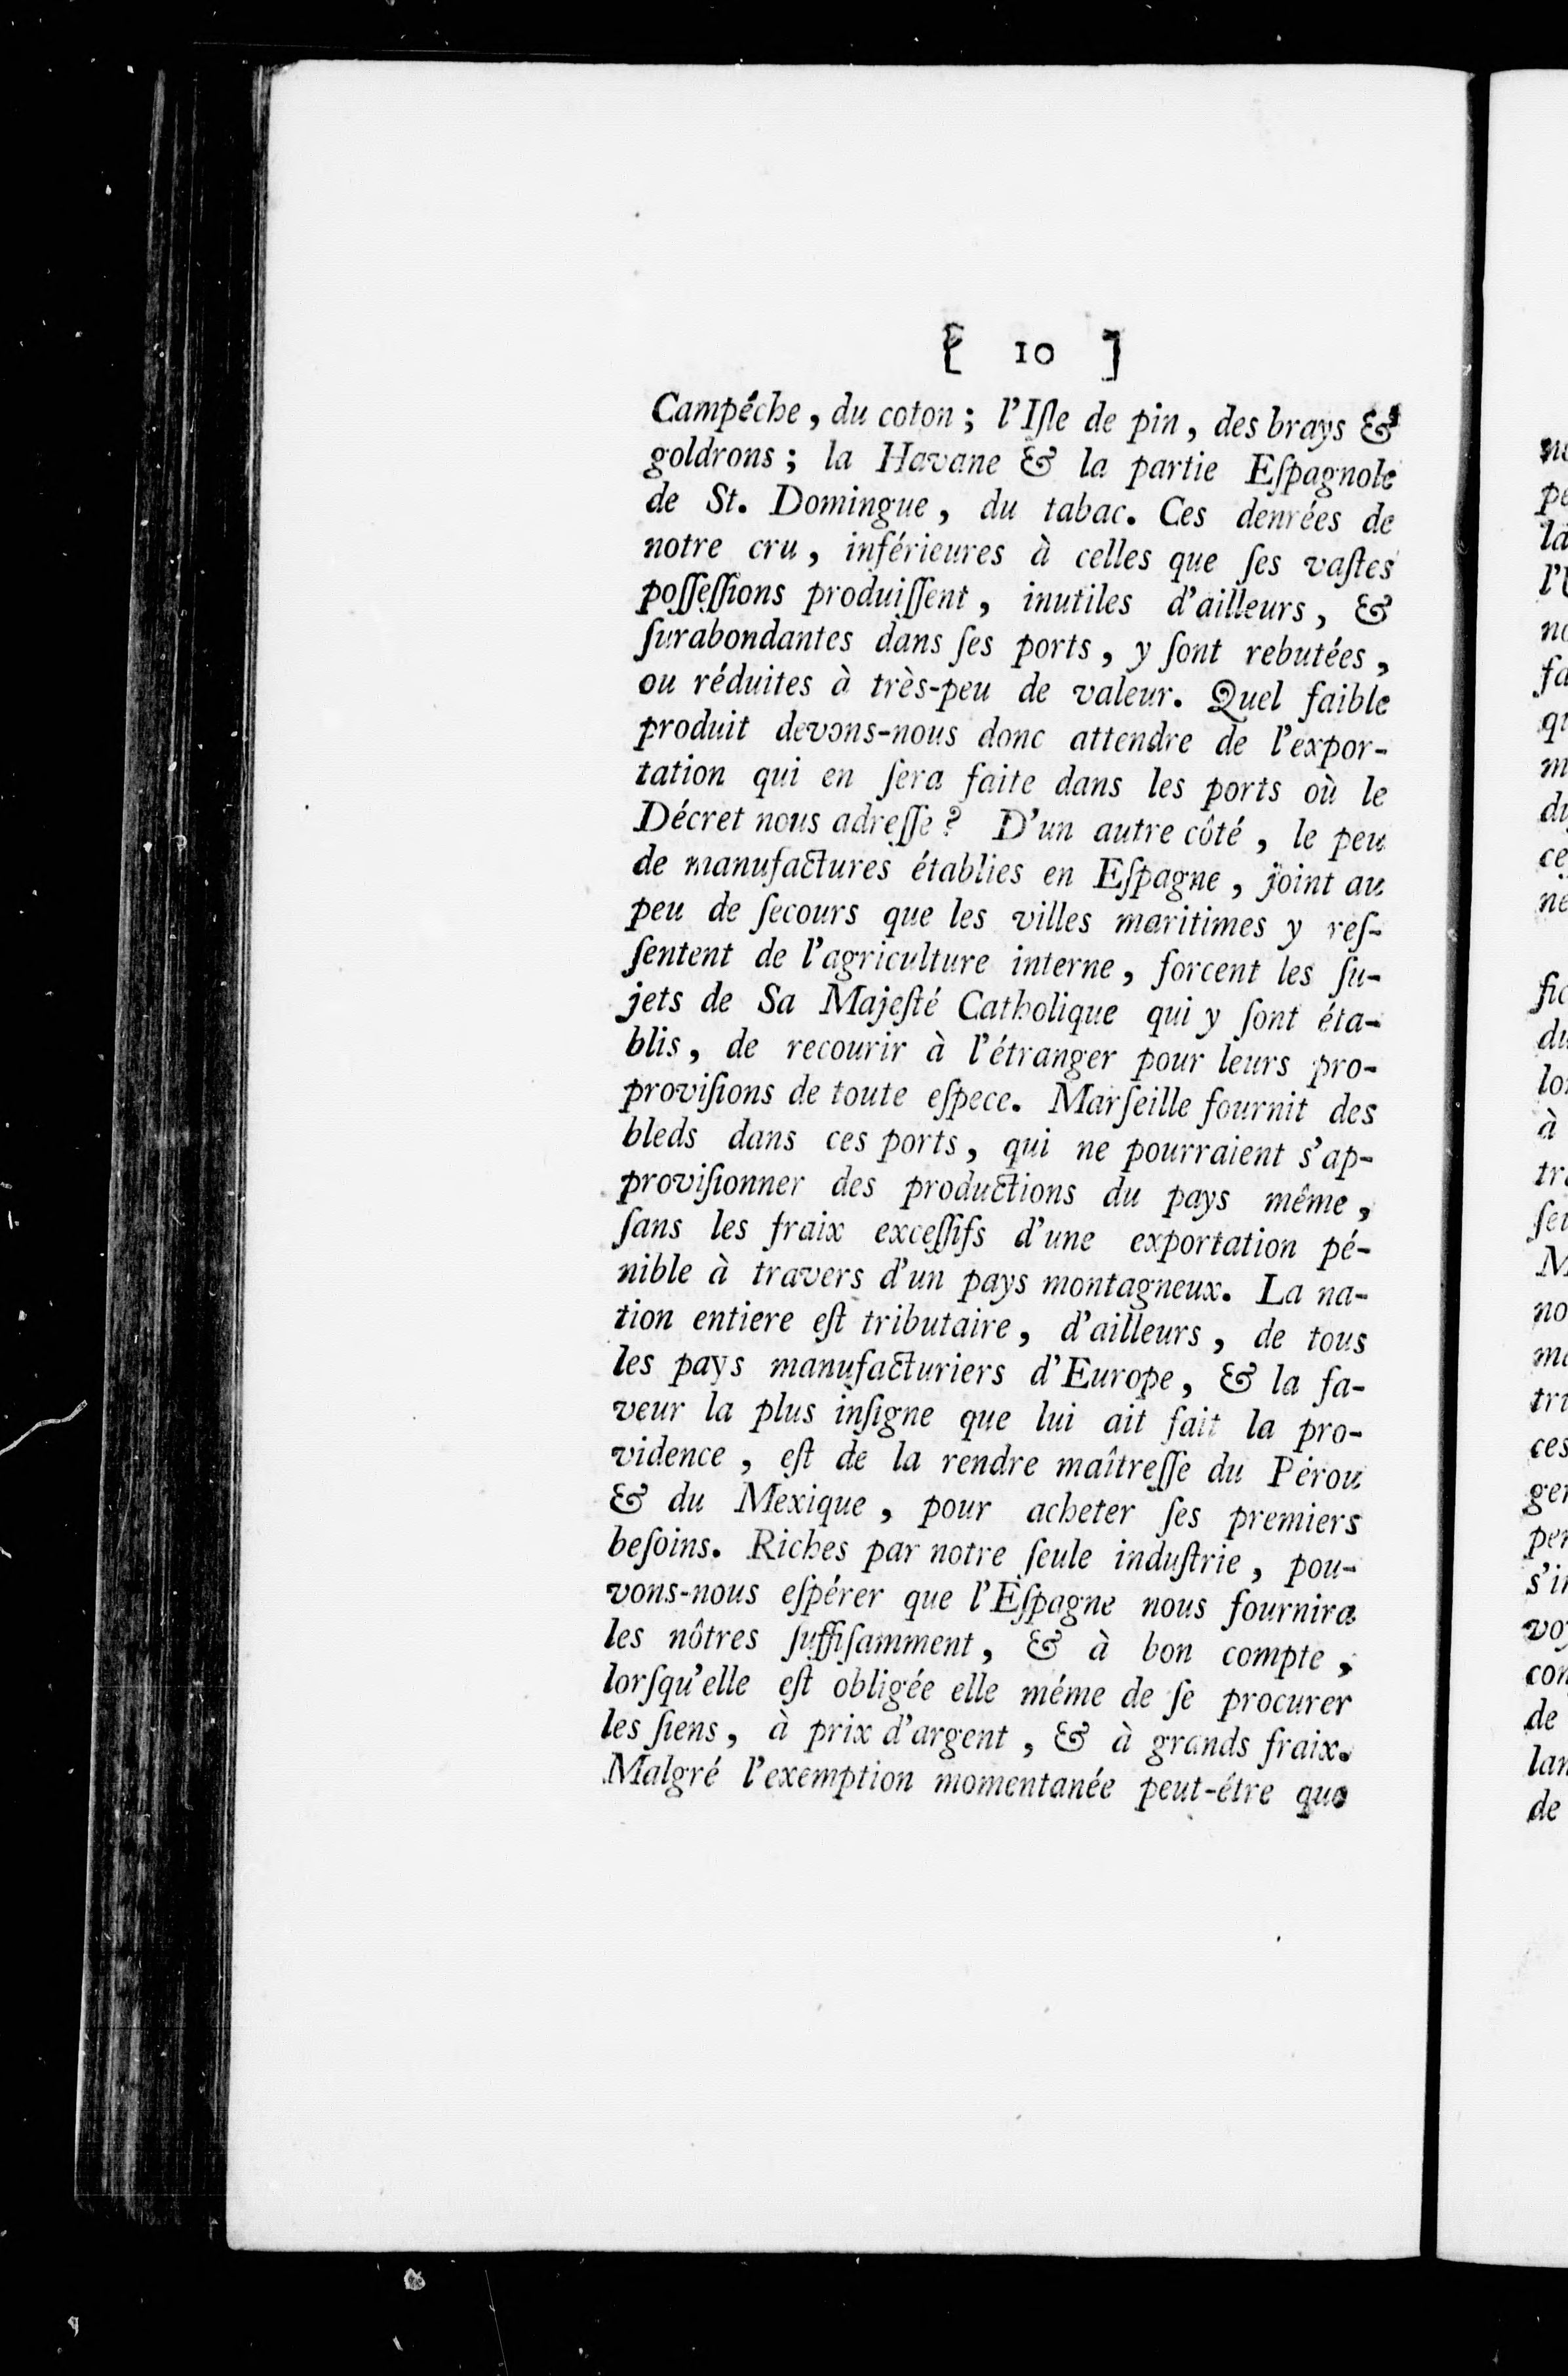 [ 10 ]
Campéche, du coton ; l'Iſle de pin, des brays &
goldrons ; la Havane & la partie Eſpagnole
de St. Domingue, du tabac. Ces denrées de
notre cru, inférieures à celles que ſes vaſtes
poſſeſſions produiſſent, inutiles d'ailleurs, &
ſurabondantes dans ſes ports, y ſont rebutées,
ou réduites à très-peu de valeur. Quel faible
produit devons-nous donc attendre de l'expor-
tation qui en ſera faite dans les ports où le
Décret nous adreſſe ? D'un autre côté, le peu
de manufactures établies en Eſpagne, joint au
peu de ſecours que les villes maritimes y reſ-
ſentent de l'agriculture interne, forcent les ſu-
jets de Sa Majeſté Catholique qui y ſont éta-
blis, de recourir à l'étranger pour leurs pro-
proviſions de toute eſpece. Marſeille fournit des
bleds dans ces ports, qui ne pourraient s'ap-
proviſionner des productions du pays même,
ſans les fraix exceſſifs d'une exportation pé-
nible à travers d'un pays montagneux. La na-
tion entiere eſt tributaire, d'ailleurs, de tous
les pays manufacturiers d'Europe, & la fa-
veur la plus inſigne que lui ait fait la pro-
vidence, eſt de la rendre maîtreſſe du Pérou
& du Mexique, pour acheter ſes premiers
beſoins. Riches par notre ſeule induſtrie, pou-
vons-nous eſpérer que l'Eſpagne nous fournira
les nôtres ſuffiſamment, & à bon compte,
lorſqu'elle eſt obligée elle méme de ſe procurer
les ſiens, à prix d'argent, & à grands fraix.
Malgré l'exemption momentanée peut-étre que